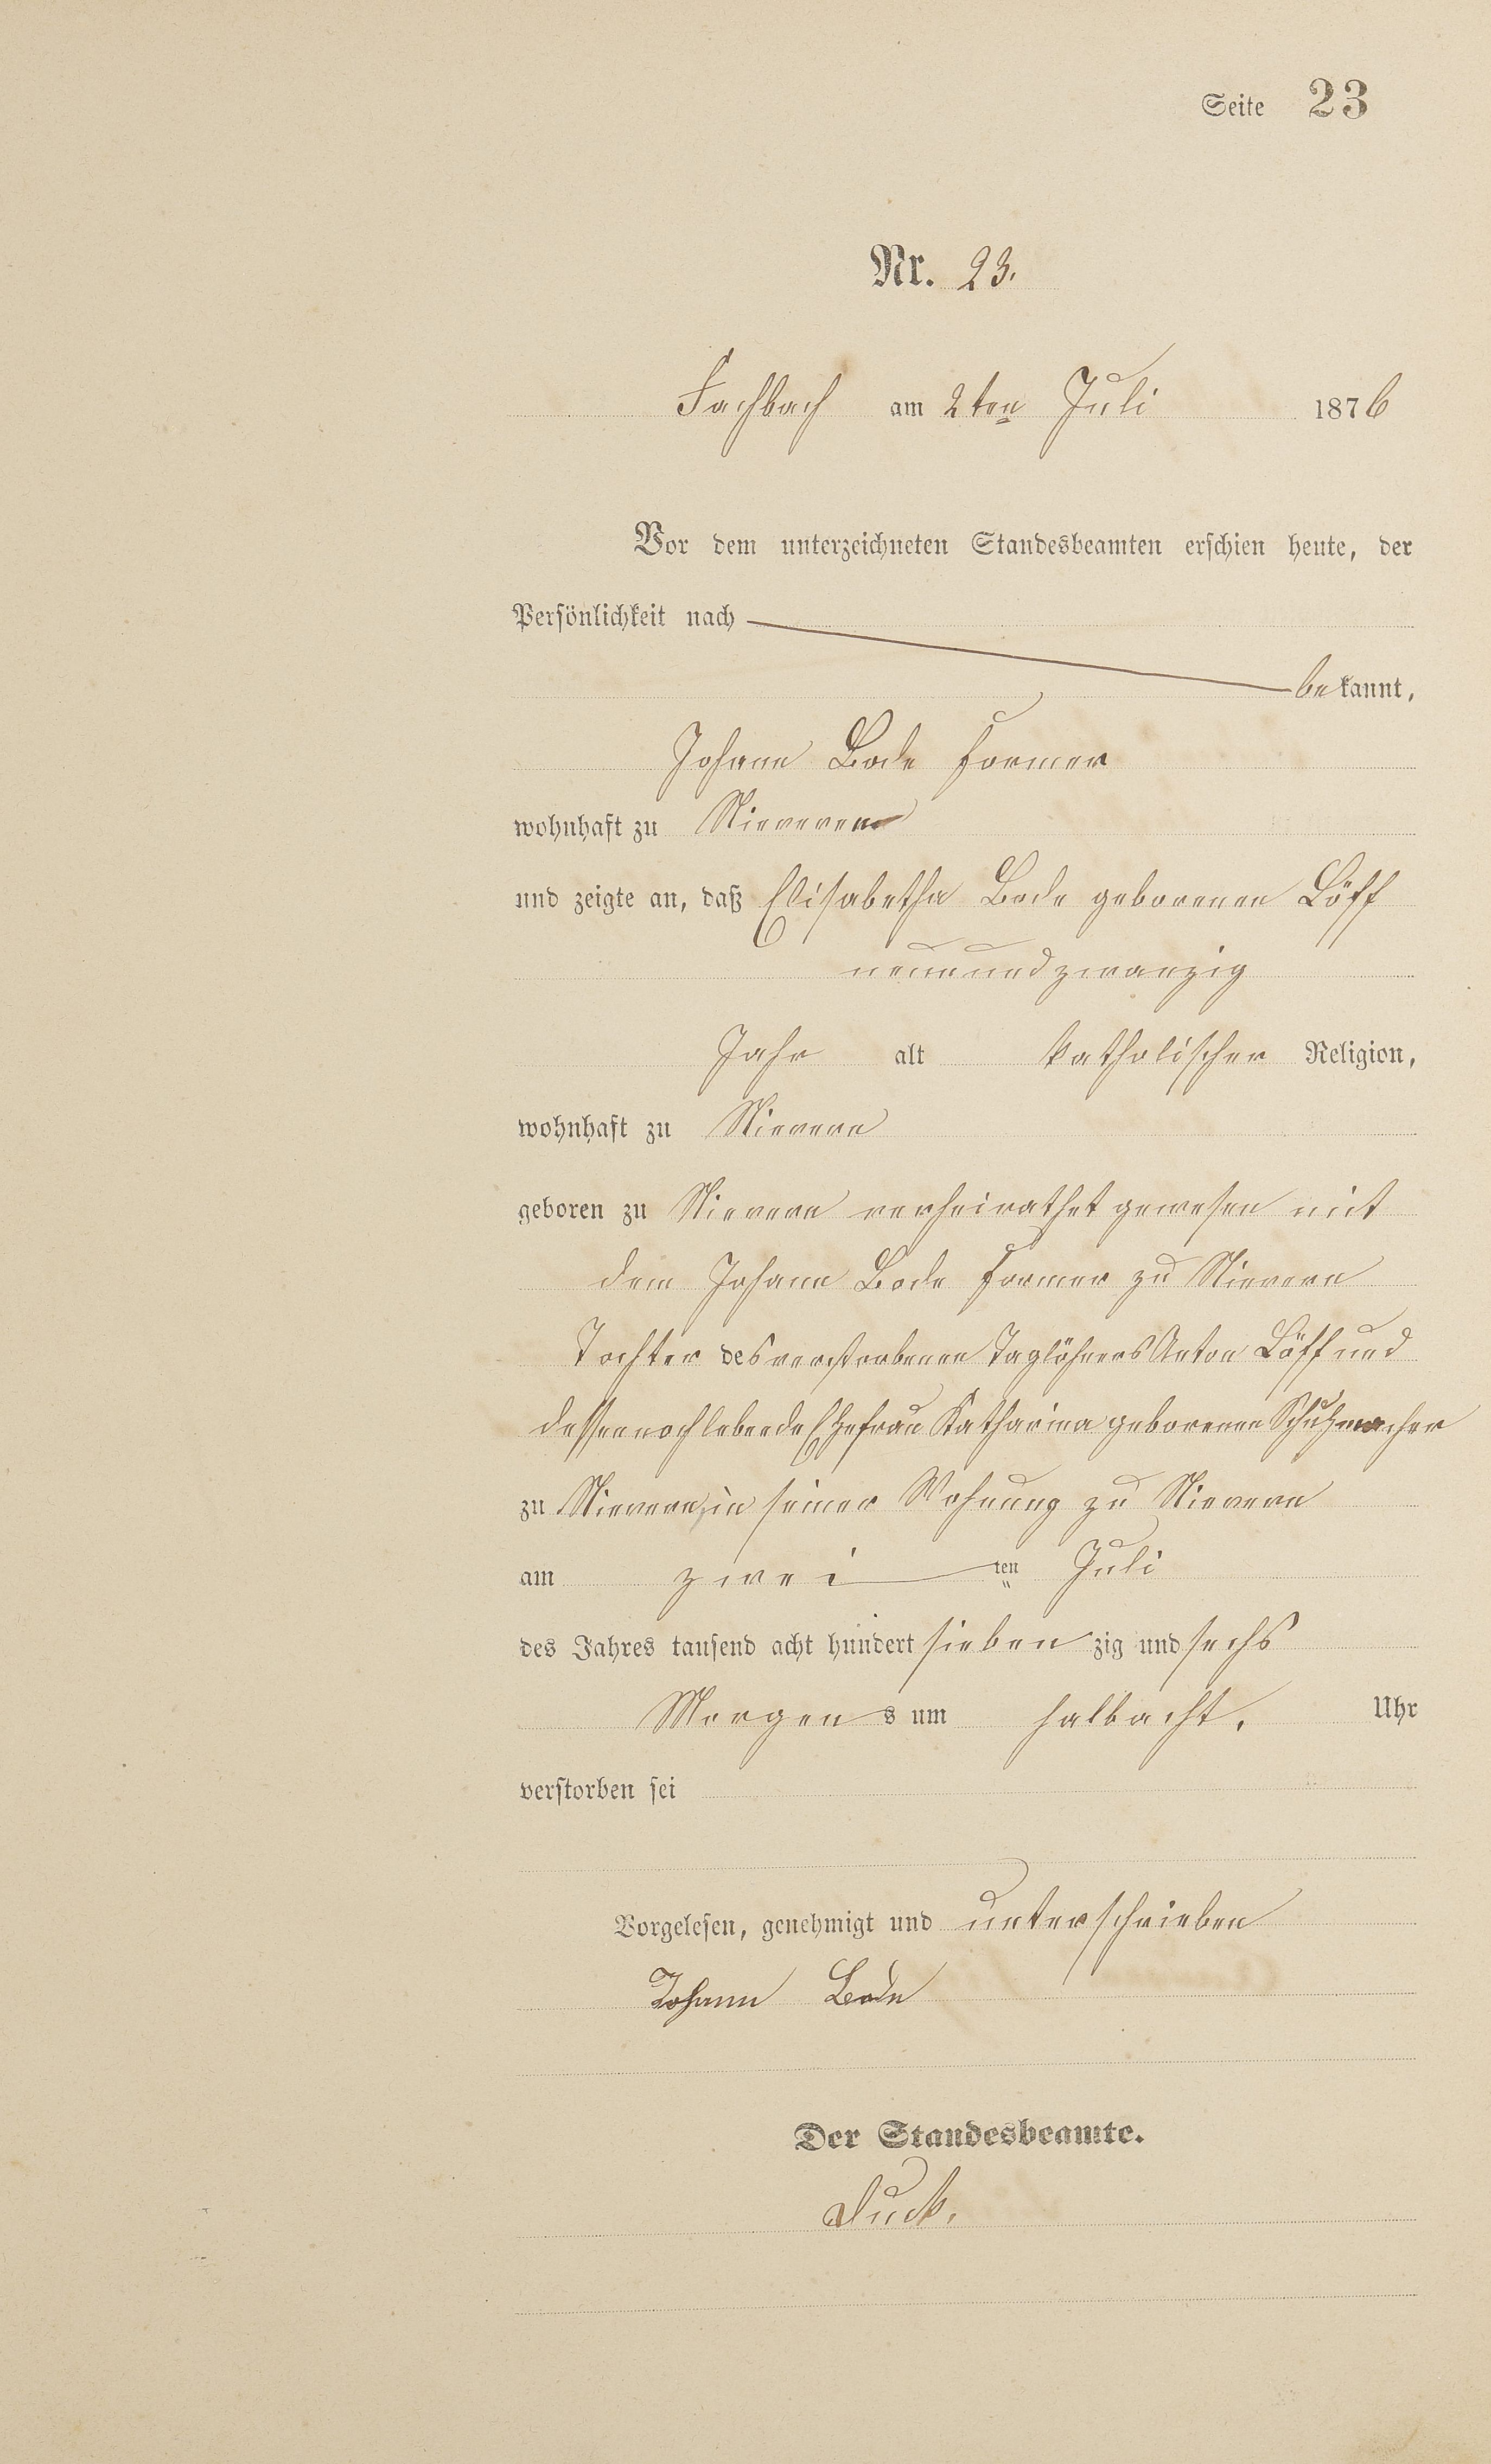 Seite 23
Nr. 23.
Fachbach am 2ten Juli 1876
Vor dem unterzeichneten Standesbeamten erschien heute, der
Persönlichkeit nach
bekannt,
Johann Bode Former
wohnhaft zu Nievern
und zeigte an, daß Elisabetha Bode geborenen Löff
neunundzwanzig
Jahr alt katholischer Religion,
wohnhaft zu Nievern
geboren zu Nievern verheirathet gewesen mit
dem Johann Bode Former zu Nievern
Tochter des verstorbenen Taglöhners Anton Löff und
dessen noch lebende Ehefrau Katharina geborenen Schuhmacher
zu Nievern, in seiner Wohnung zu Nievern
am zwei ten Juli
des Jahres tausend acht hundert sieben zig und sechs
Morgen s um halbacht. Uhr
verstorben sei
Vorgelesen, genehmigt und unterschrieben
Johann Bode
Der Standesbeamte.